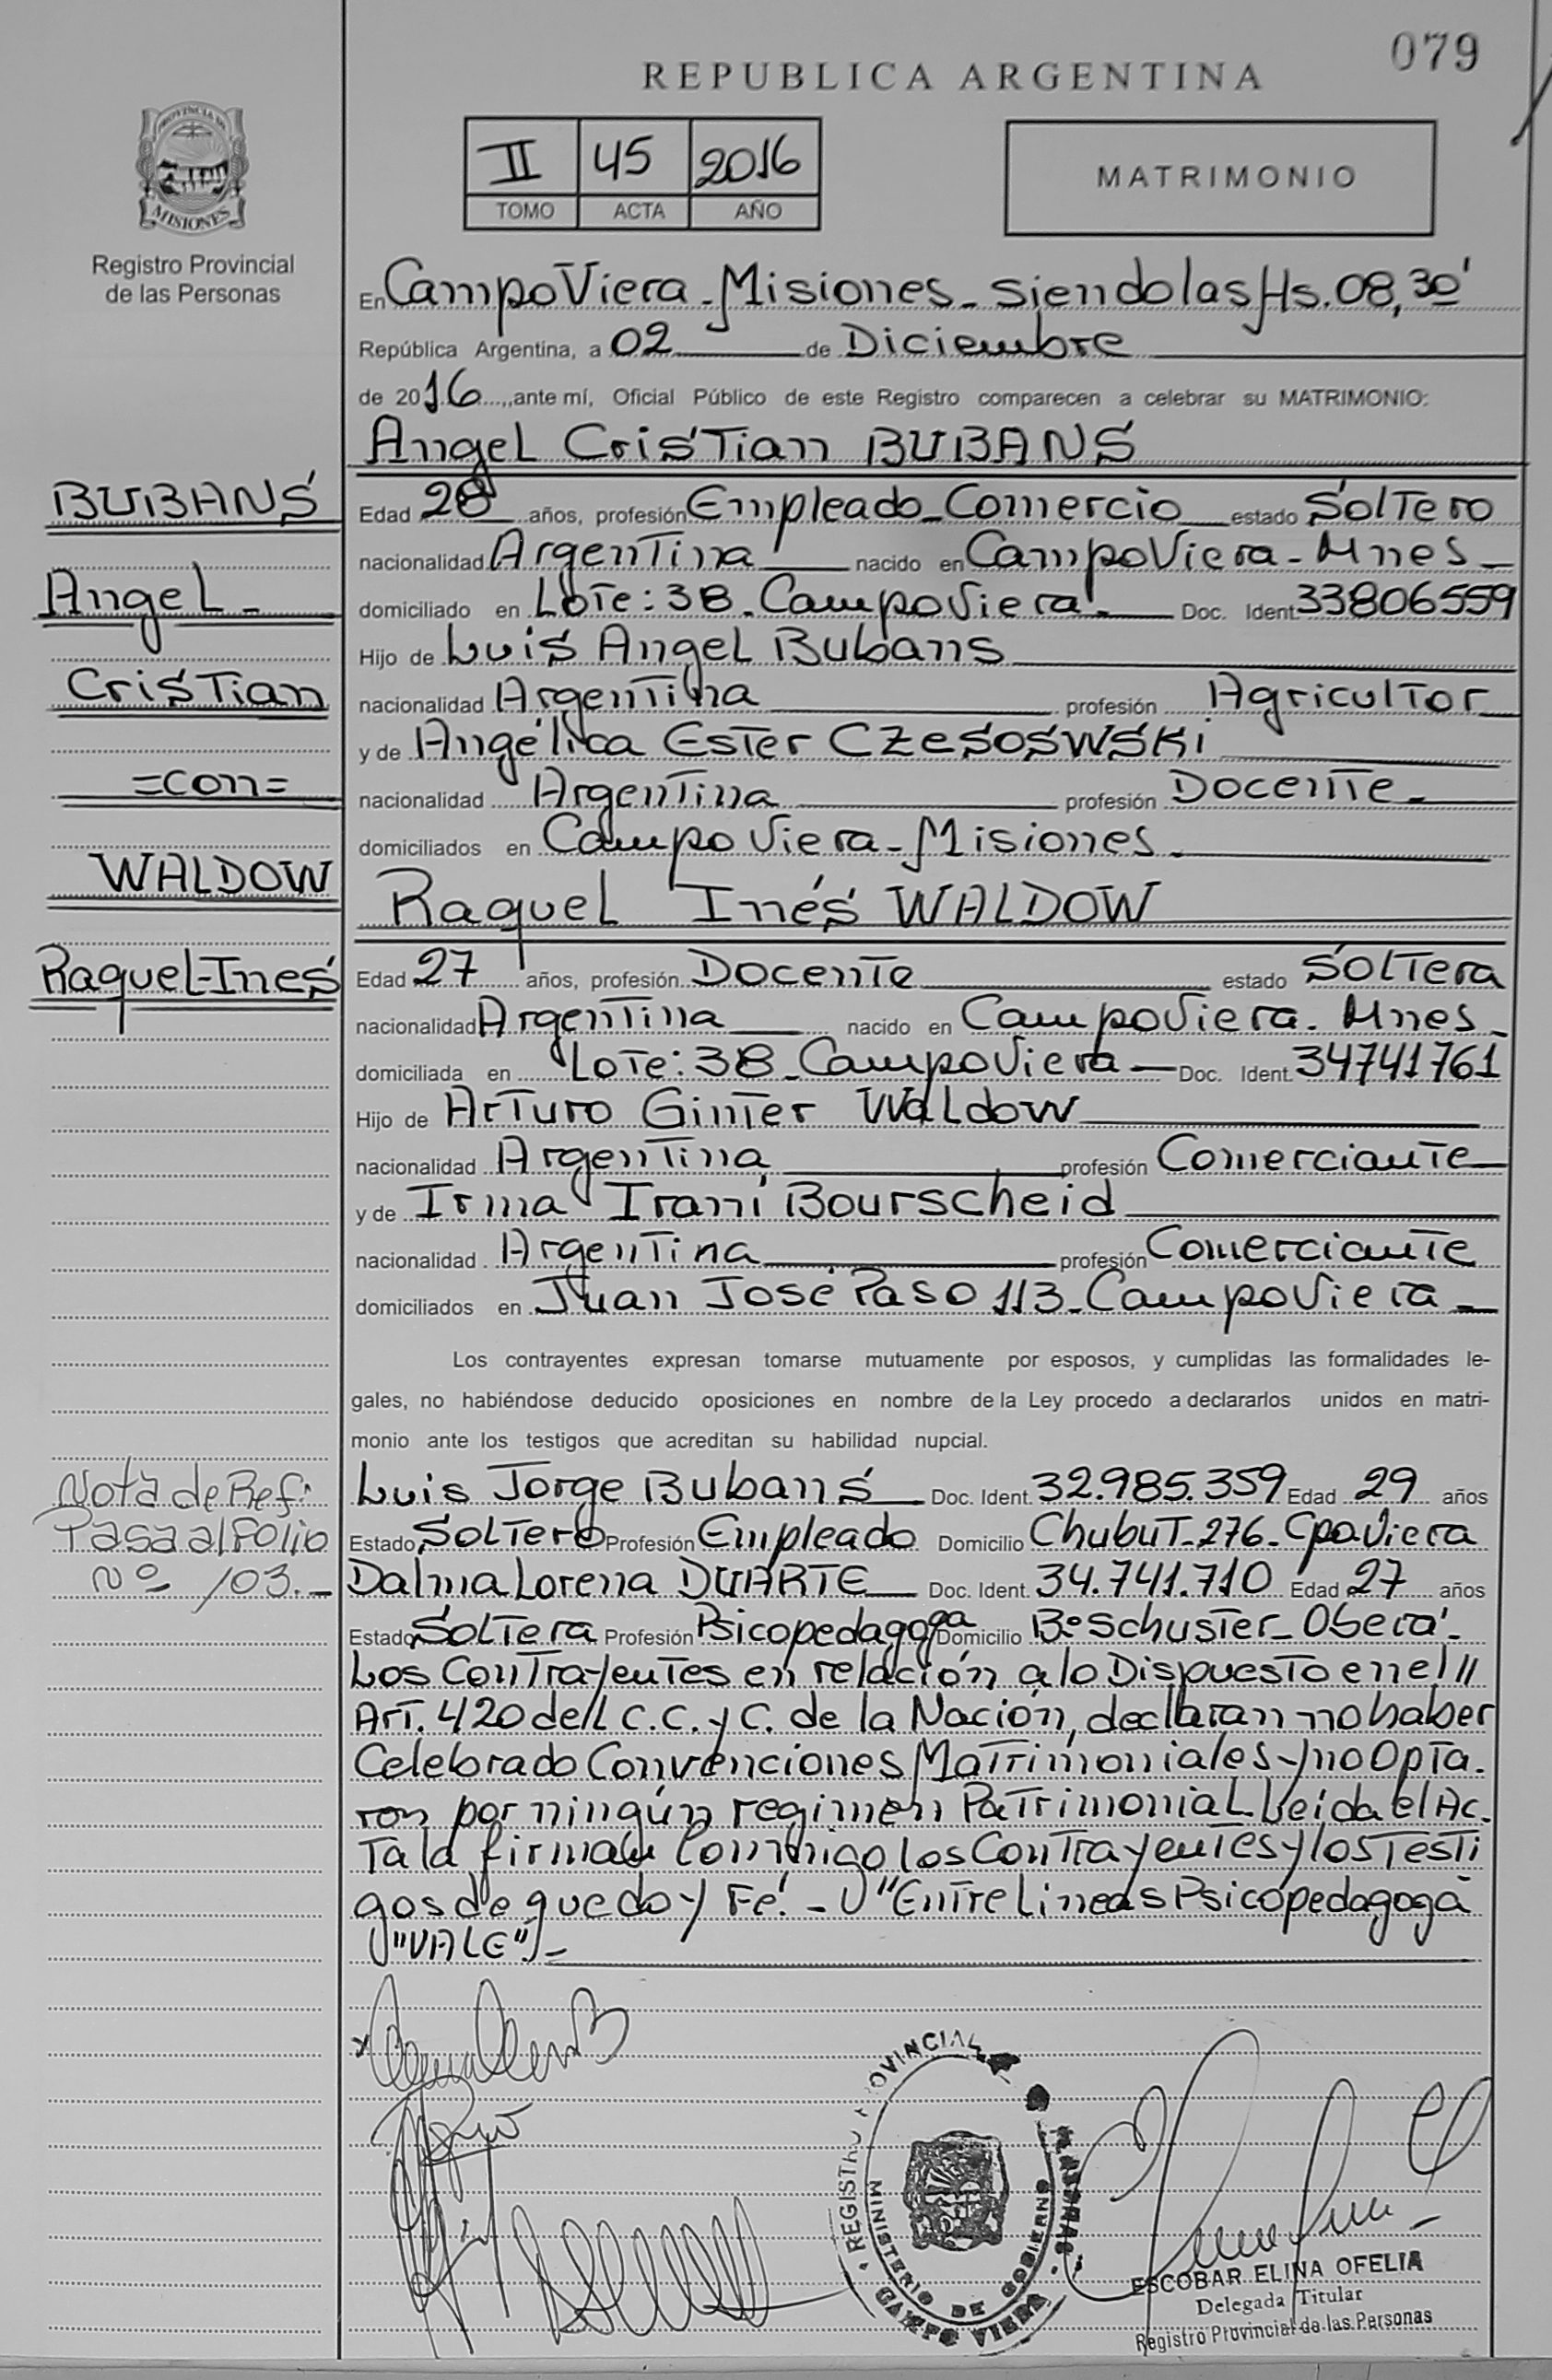 079
REPUBLICA ARGENTINA
II 45 2016
TOMO ACTA AÑO
MATRIMONIO
PROVINCIA DE
MISIONES
Registro Provincial
de las Personas
En Campo Viera - Misiones - siendo las Hs. 08,30'
República Argentina, a 02 de Diciembre
de 2016, ante mí, Oficial Público de este Registro comparecen a celebrar su MATRIMONIO:
Angel Cristian BUBANS
BUBANS
Angel -
Cristian
=con=
WALDOW
Raquel-Inés
Edad 28 años, profesión Empleado Comercio estado Soltero
nacionalidad Argentina nacido en Campo Viera - Mnes -
domiciliado en Lote: 38 - Campo Viera - Doc. Ident. 33806559
Hijo de Luis Angel Bubans
nacionalidad Argentina profesión Agricultor
y de Angélica Ester CZESOSWSKi
nacionalidad Argentina profesión Docente -
domiciliados en Campo Viera - Misiones -
Raquel Inés WALDOW
Edad 27 años, profesión Docente estado Soltera
nacionalidad Argentina nacido en Campo Viera - Mnes -
domiciliada en Lote: 38 - Campo Viera - Doc. Ident. 34741761
Hijo de Arturo Ginter Waldow
nacionalidad Argentina profesión Comerciante
y de Irma Irani Bourscheid
nacionalidad Argentina profesión Comerciante
domiciliados en Juan José Paso 113 - Campo Viera -
Los contrayentes expresan tomarse mutuamente por esposos, y cumplidas las formalidades le-
gales, no habiéndose deducido oposiciones en nombre de la Ley procedo a declararlos unidos en matri-
monio ante los testigos que acreditan su habilidad nupcial.
Nota de Ref:
Pasa al Folio
Nº 103.-
Luis Jorge Bubans Doc. Ident. 32.985.359 Edad 29 años
Estado Soltero Profesión Empleado Domicilio Chubut - 276 - Cpo. Viera
Dalma Lorena DUARTE Doc. Ident. 34.741.710 Edad 27 años
Estado Soltera Profesión Psicopedagoga Domicilio Bº Schuster - Oberá -
Los Contrayentes en relación a lo Dispuesto en el //
Art. 420 del C.C. y C. de la Nación, declaran no haber
Celebrado Convenciones Matrimoniales y no Opta-
ron por ningún regimen Patrimonial Leida el Ac-
ta la firman Conmigo los Contrayentes y los Testi
gos de que doy Fé. - "Entre Lineas Psicopedagoga
"VALE") -
REGISTRO PROVINCIAL
MINISTERIO DE GOBIERNO
CAMPO VIERA
ESCOBAR ELINA OFELIA
Delegada Titular
Registro Provincial de las Personas